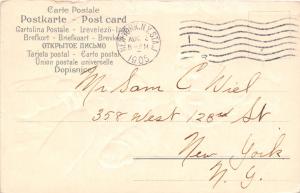 Carte Postale
Postkarte - Post card
Cartolina Postale - Levelező-Lap
Brefkort - Briefkaart - Brevkort
ОТКРЫТОЕ ПИСЬМО
Tarjeta postal - Carte postal
Union postale universelle
Dopisnice
NEW YORK, N.Y. STA. J
AUG
1905
Mr Sam C Wiel
358 West 128th St
New York
N.Y.